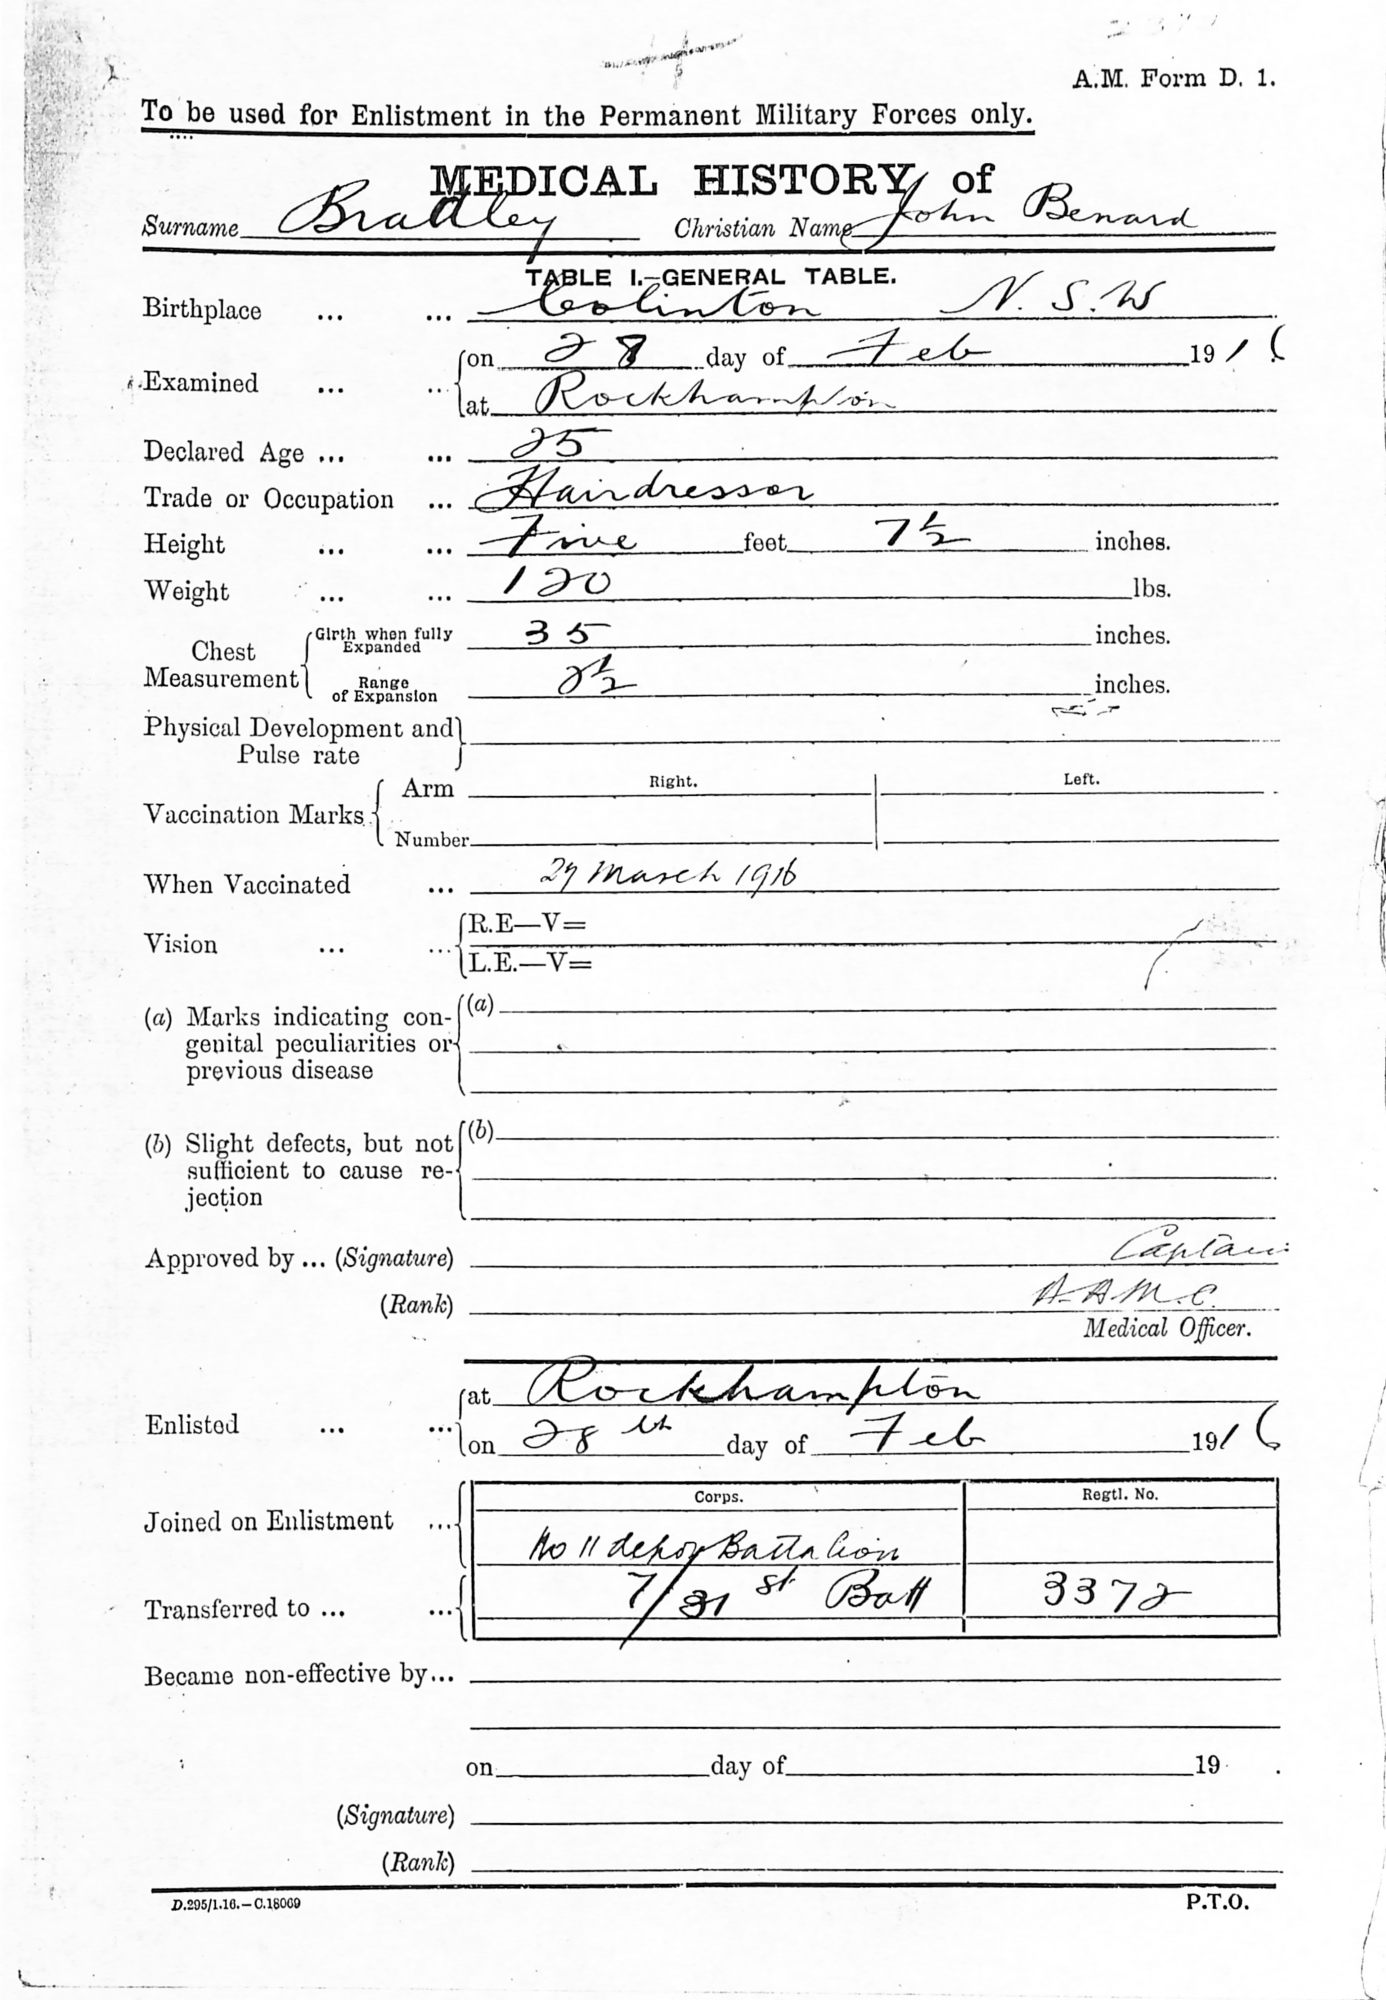 A.M. Form D. 1.
To be used for Enlistment in the Permanent Military Forces only.
MEDICAL HISTORY of
Surname Bradley Christian Name John Benard
TABLE I.—GENERAL TABLE.
Birthplace ... ... Colinton N.S.W
Examined ... ... on 28 day of Feb 1916
at Rockhampton
Declared Age ... ... 25
Trade or Occupation ... Hairdresser
Height ... ... Five feet 7½ inches.
Weight ... ... 120 lbs.
Chest Measurement Girth when fully Expanded 35 inches.
Range of Expansion 2½ inches.
Physical Development and Pulse rate
Vaccination Marks Arm Right. Left.
Number
When Vaccinated ... 27 March 1916
Vision ... ... R.E—V=
L.E.—V=
(a) Marks indicating con- (a)
genital peculiarities or
previous disease
(b) Slight defects, but not (b)
sufficient to cause re-
jection
Approved by ... (Signature) Captain
(Rank) A.A.M.C.
Medical Officer.
Enlisted ... ... at Rockhampton
on 28th day of Feb 1916
Corps. Regtl. No.
Joined on Enlistment ... No 11 depot Battalion
Transferred to ... ... 7/31st Batt 3372
Became non-effective by...
on day of 19 .
(Signature)
(Rank)
D.295/1.16.—C.18069 P.T.O.